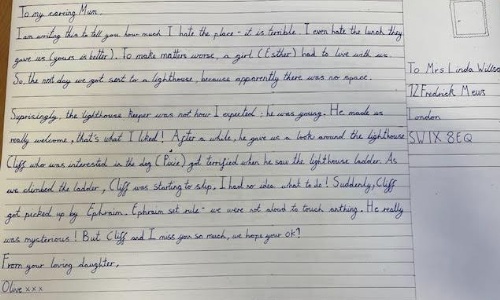 To my caring Mum.
I am writing this to tell you how much I hate the place - it is terrible. I even hate the lunch they
gave us (yours is better). To make matters worse, a girl (Esther) had to live with us.
So the next day we got sent to a lighthouse, because apparently there was no space.
Suprisingly, the lighthouse keeper was not how I expected : he was young. He made us
really welcome, that's what I liked! After a while, he gave us a look around the lighthouse
Cliff who was interested in the dog (Pixie) got terrified when he saw the lighthouse ladder. As
we climbed the ladder, Cliff was starting to slip. I had no idea what to do! Suddenly, Cliff
got picked up by Ephraim. Ephraim set rule - we were not aloud to touch anthing. He really
was mysterious! But Cliff and I miss you so much, we hope your ok?
From your loving daughter,
Olive xxx
To Mrs Linda Wilson
12 Fredrick Mews
London
SW1X 8EQ